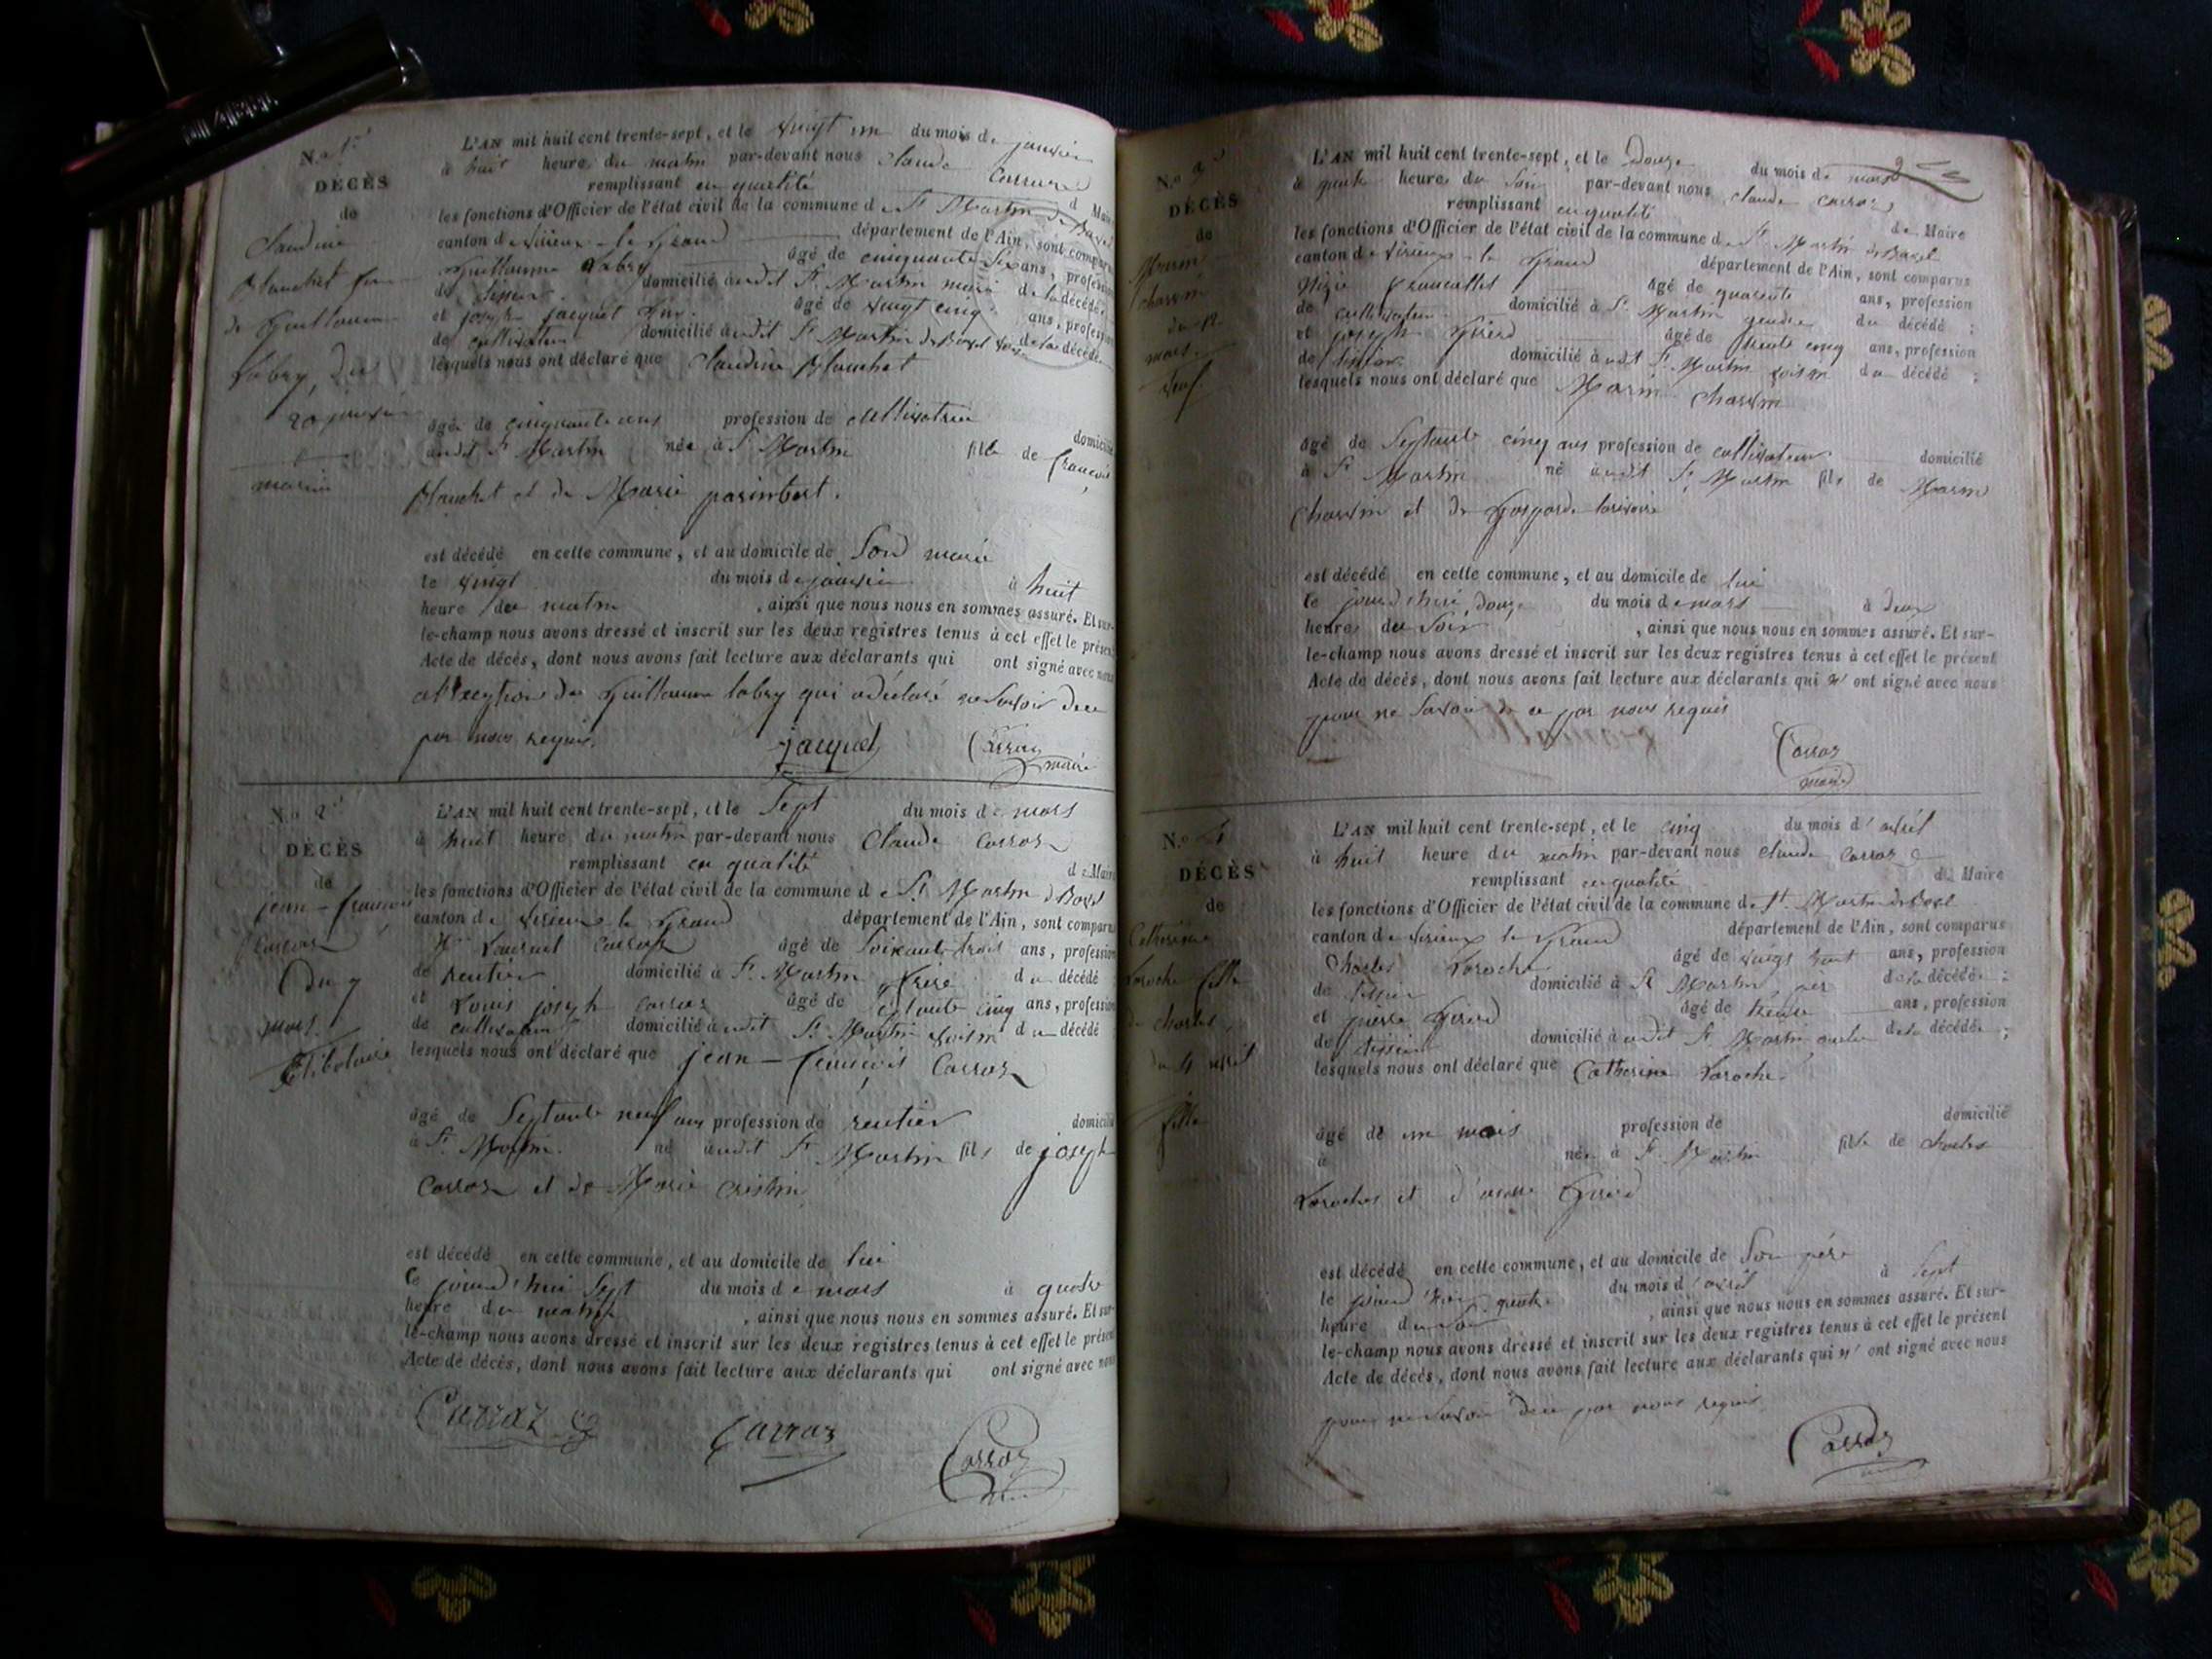 N.o 1er
DÉCÈS
de
Claudine
Blanchet
de Guillaume
Labry, du
20 janvier
L'AN mil huit cent trente-sept, et le vingt un du mois de janvier
à huit heure du matin par-devant nous Claude Carraz
remplissant en qualité de Maire
les fonctions d'Officier de l'état civil de la commune de St Martin de Bavel
canton de Virieux-le-Grand département de l'Ain, sont comparus
Guillaume Labry âgé de cinquante six ans, profession
de tissier domicilié audit St Martin mari de la décédée
et joseph jacquet âgé de vingt cinq ans, profession
de cultivateur domicilié audit St Martin de Bavel voisin de la décédée
lesquels nous ont déclaré que Claudine Blanchet
âgée de cinquante ans profession de cultivatrice domicilié
audit St Martin née à St Martin fille de françois
Blanchet et de Marie
est décédé en cette commune, et au domicile de son mari
le vingt du mois de janvier à huit
heure du matin , ainsi que nous nous en sommes assuré. Et sur-
le-champ nous avons dressé et inscrit sur les deux registres tenus à cet effet le présent
Acte de décès, dont nous avons fait lecture aux déclarants qui ont signé avec nous
à l'exeption de Guillaume labry qui a déclaré ne savoir de ce
par nous requis.
jacquet Carraz
maire
N.o 2
DÉCÈS
de
jean-françois
Carraz
Du 7
mars.
L'AN mil huit cent trente-sept, et le Sept du mois de mars
à huit heure du matin par-devant nous Claude Carraz
remplissant en qualité de Maire
les fonctions d'Officier de l'état civil de la commune de St Martin de Bavel
canton de Virieux le Grand département de l'Ain, sont comparus
Laurent Carraz âgé de Soixante trois ans, profession
de rentier domicilié à St Martin frère du décédé
et Louis joseph Carraz âgé de cinq ans, profession
de cultivateur domicilié audit St Martin voisin du décédé
lesquels nous ont déclaré que jean-françois Carraz
âgé de Septante neuf ans profession de rentier domicilié
à St Martin. né audit St Martin fils de joseph
Carraz et de Marie
est décédé en cette commune, et au domicile de lui
le jourd'hui Sept du mois de mars à quatre
heure du matin , ainsi que nous nous en sommes assuré. Et sur-
le-champ nous avons dressé et inscrit sur les deux registres tenus à cet effet le présent
Acte de décès, dont nous avons fait lecture aux déclarants qui ont signé avec nous
Carraz Carraz Carraz
N.o 3
DÉCÈS
de
Marin
du 12
mars.
veuf
L'AN mil huit cent trente-sept, et le Douze du mois de mars
à quatre heure du Soir par-devant nous Claude Carraz
remplissant en qualité de Maire
les fonctions d'Officier de l'état civil de la commune de St Martin de Bavel
canton de Virieux-le Grand département de l'Ain, sont comparus
âgé de quarante ans, profession
de cultivateur domicilié à St Martin gendre du décédé ;
et joseph Girod âgé de trente cinq ans, profession
de tissier domicilié audit St Martin voisin du décédé ;
lesquels nous ont déclaré que Marin
âgé de Septante cinq ans profession de cultivateur domicilié
à St Martin né audit St Martin fils de Marin
et de
est décédé en cette commune, et au domicile de lui
le jourd'hui douze du mois de mars à deux
heures du Soir , ainsi que nous nous en sommes assuré. Et sur-
le-champ nous avons dressé et inscrit sur les deux registres tenus à cet effet le présent
Acte de décès, dont nous avons fait lecture aux déclarants qui n'ont signé avec nous
pour ne Savoir de ce par nous requis
Carraz
maire
N.o 4
DÉCÈS
de
Catherine
Laroche fille
de charles,
du 4 avril
fille
L'AN mil huit cent trente-sept, et le cinq du mois d'avril
à huit heure du matin par-devant nous Claude Carraz
remplissant en qualité de Maire
les fonctions d'Officier de l'état civil de la commune de St Martin de Bavel
canton de Virieux le Grand département de l'Ain, sont comparus
Charles Laroche âgé de vingt huit ans, profession
de tissier domicilié à St Martin, père de la décédée ;
et pierre Girod âgé de trente ans, profession
de tissier domicilié audit St Martin, oncle de la décédée ;
lesquels nous ont déclaré que Catherine Laroche.
âgé de un mois profession de domicilié
à née à St Martin fille de Charles
Laroche et d' Girod
est décédé en cette commune, et au domicile de Son père
le jourd'hui quatre du mois d'avril à Sept
heure du soir , ainsi que nous nous en sommes assuré. Et sur-
le-champ nous avons dressé et inscrit sur les deux registres tenus à cet effet le présent
Acte de décès, dont nous avons fait lecture aux déclarants qui n'ont signé avec nous
pour ne Savoir de ce par nous requis
Carraz